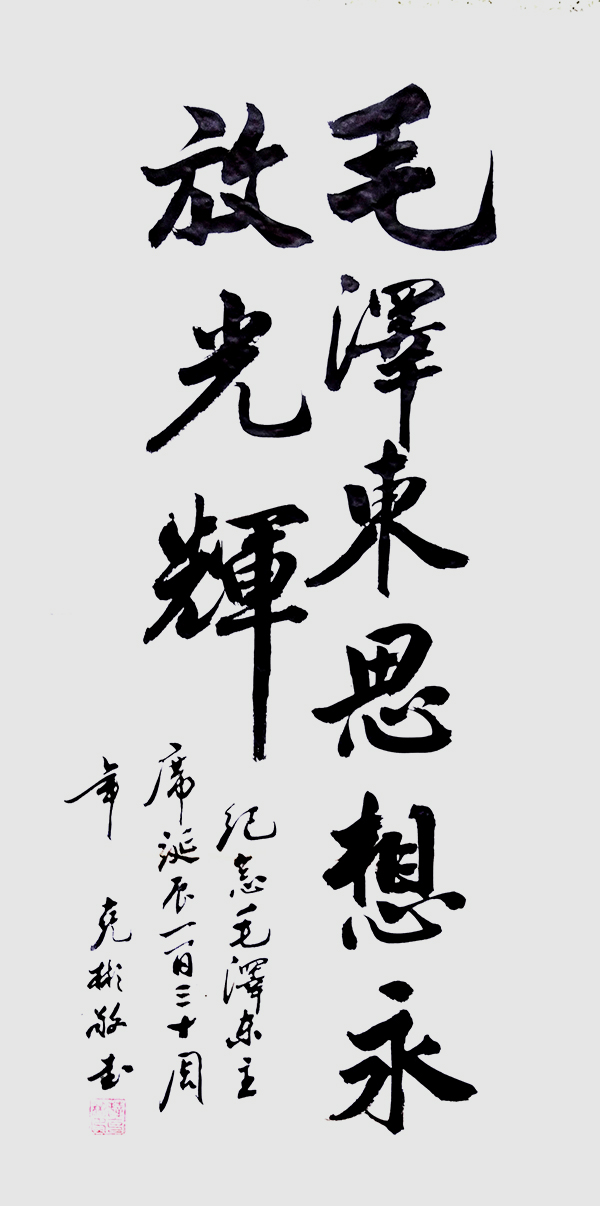 毛澤東思想永
放光輝
紀念毛澤东主
席诞辰一百三十周
年 克彬敬书